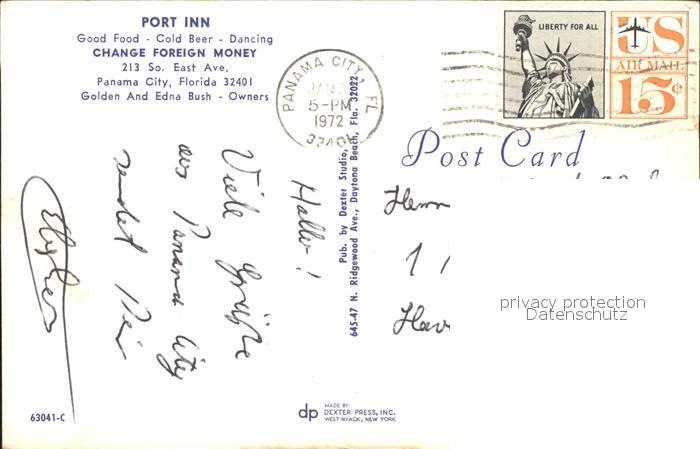 PORT INN
Good Food - Cold Beer - Dancing
CHANGE FOREIGN MONEY
213 So. East Ave.
Panama City, Florida 32401
Golden And Edna Bush - Owners
PANAMA CITY, FL
JAN
5-PM
1972
32401
LIBERTY FOR ALL
US
AIR MAIL
15¢
Post Card
Hallo!
Viele Grüße
aus Panama City
sendet Dein
Pub. by Dexter Studio,
645-47 N. Ridgewood Ave., Daytona Beach, Fla. 32022
Herrn
privacy protection
Datenschutz
63041-C
dp
MADE BY
DEXTER PRESS, INC.
WEST NYACK, NEW YORK